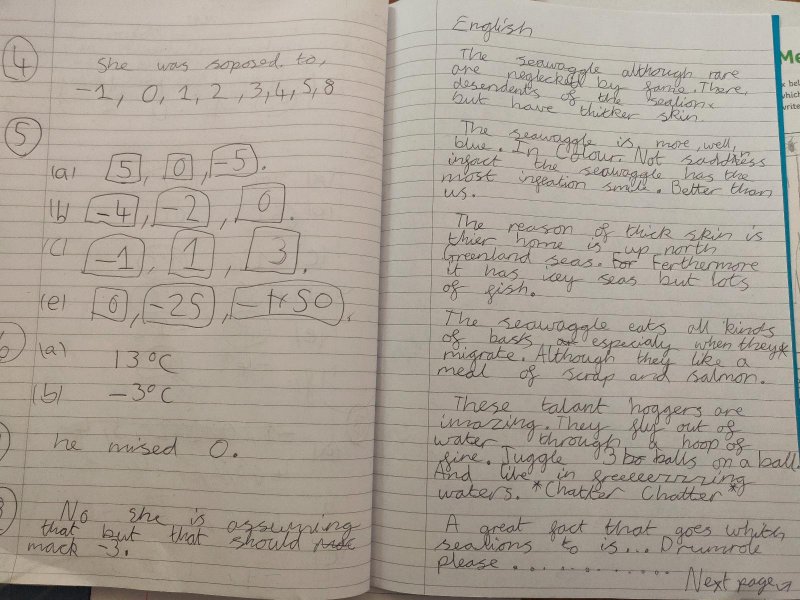 4
She was soposed to,
-1, 0, 1, 2, 3, 4, 5, 8
5
(a) 5, 0, -5.
(b) -4, -2, 0.
(c) -1, 1, 3.
(e) 0, -25, -50.
(a) 13°C
(b) -3°C
he mised 0.
No she is assuming
that but that should
mack -3.
English
The seawaggle although rare
are neglecked by fame. There,
desendents of the sealion
but have thicker skin.
The seawaggle is more, well,
blue. In Colour. Not saddness
infact the seawaggle has the
most infeation smile. Better than
us.
The reason of thick skin is
thier home is up north
Greenland seas. For Ferthermore
it has icey seas but lots
of fish.
The seawaggle eats all kinds
of especialy when they
migrate. Although they like a
meal of scrap and salmon.
These talant hoggers are
imazing. They fly out of
water through a hoop of
fire. Juggle 3 bo balls on a ball.
And live in freeeerrrring
waters. *Chatter Chatter*
A great fact that goes whith
sealions to is... Drumrole
please ............
Next page
Me